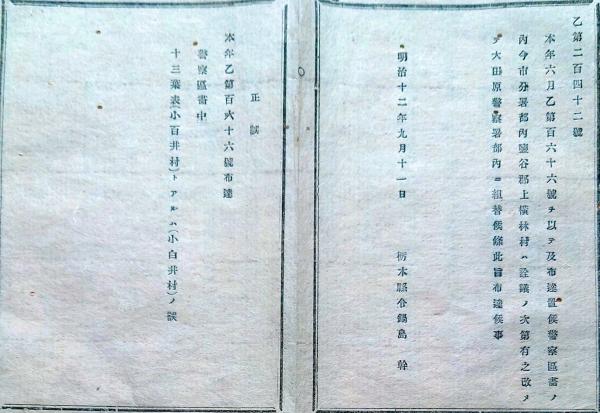 乙第二百四十二號
本年六月乙第百六十六號ヲ以テ及布達置候警察區畫ノ
內今市分署部內鹽谷郡上橫林村ハ詮議ノ次第有之改メ
テ大田原警察署部內ニ組替候條此旨布達候事
明治十二年九月十一日
栃木縣令鍋島幹
正誤
本年乙第百六十六號布達
警察區畫中
十三葉表(小百井村)トアルハ(小白井村)ノ誤